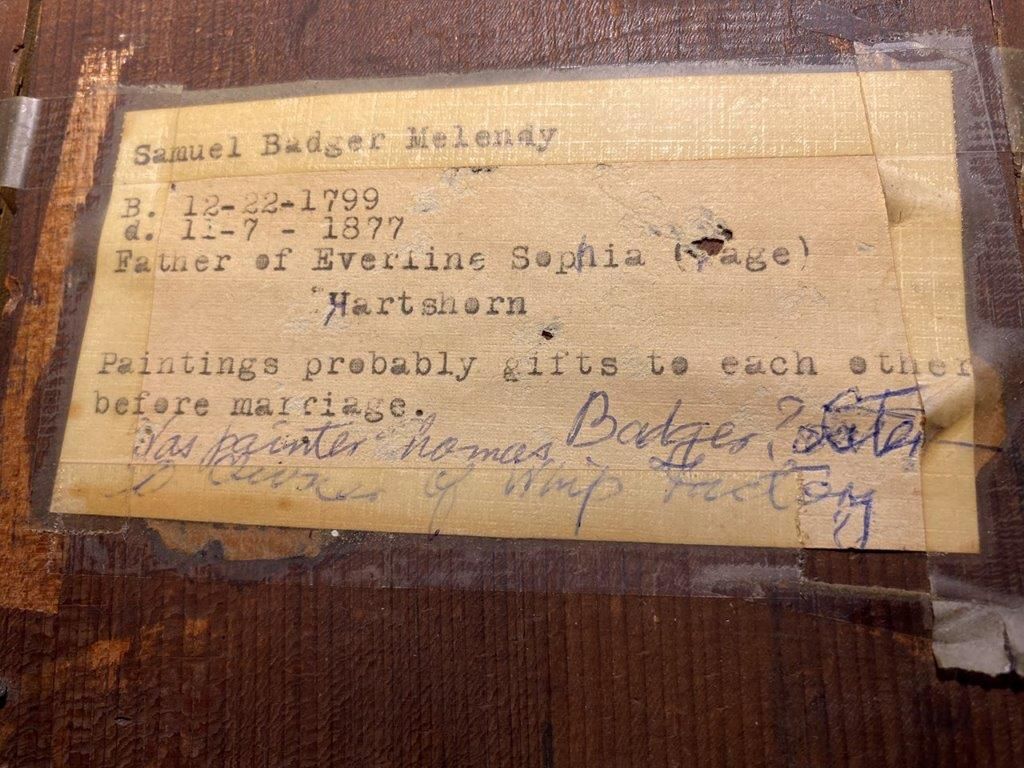 Samuel Badger Melendy
B. 12-22-1799
d. 11-7 - 1877
Father of Everline Sophia (Page)
Hartshorn
Paintings probably gifts to each other
before marriage.
Was painter Thomas Badger? Later
owner of Whip Factory